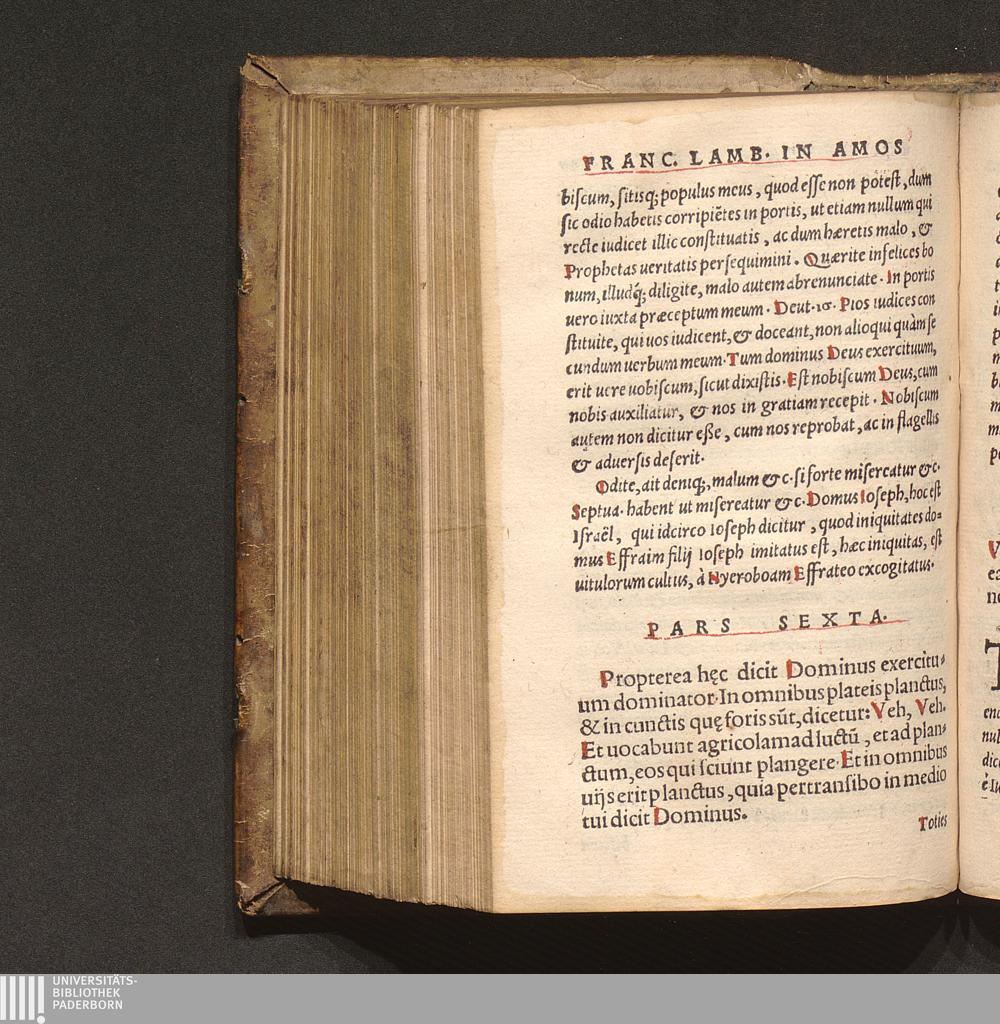 FRANC. LAMB. IN AMOS
biſcum, ſitisq; populus meus, quod eſſe non poteſt, dum
ſic odio habetis corripiẽtes in portis, ut etiam nullum qui
recte iudicet illic conſtituatis, ac dum hæretis malo, &
Prophetas ueritatis perſequimini. Quærite infelices bo
num, illudq́; diligite, malo autem abrenunciate. In portis
uero iuxta præceptum meum. Deut. 16. Pios iudices con
ſtituite, qui uos iudicent, & doceant, non alioqui quàm ſe
cundum uerbum meum. Tum dominus Deus exercituum,
erit uere uobiſcum, ſicut dixiſtis. Eſt nobiſcum Deus, cum
nobis auxiliatur, & nos in gratiam recepit. Nobiſcum
autem non dicitur eſſe, cum nos reprobat, ac in flagellis
& aduerſis deſerit.
Odite, ait deniq;, malum &c. ſi forte miſereatur &c.
Septua. habent ut miſereatur &c. Domus Ioſeph, hoc eſt
Iſraël, qui idcirco Ioſeph dicitur, quod iniquitates do=
mus Effraim filij Ioſeph imitatus eſt, hæc iniquitas, eſt
uitulorum cultus, à Hyeroboam Effrateo excogitatus.
PARS SEXTA.
Propterea hęc dicit Dominus exercitu=
um dominator. In omnibus plateis planctus,
& in cunctis quę foris sũt, dicetur: Veh, Veh.
Et uocabunt agricolam ad luctũ, et ad plan=
ctum, eos qui ſciunt plangere. Et in omnibus
uijs erit planctus, quia pertranſibo in medio
tui dicit Dominus.
Toties
UNIVERSITÄTS-
BIBLIOTHEK
PADERBORN